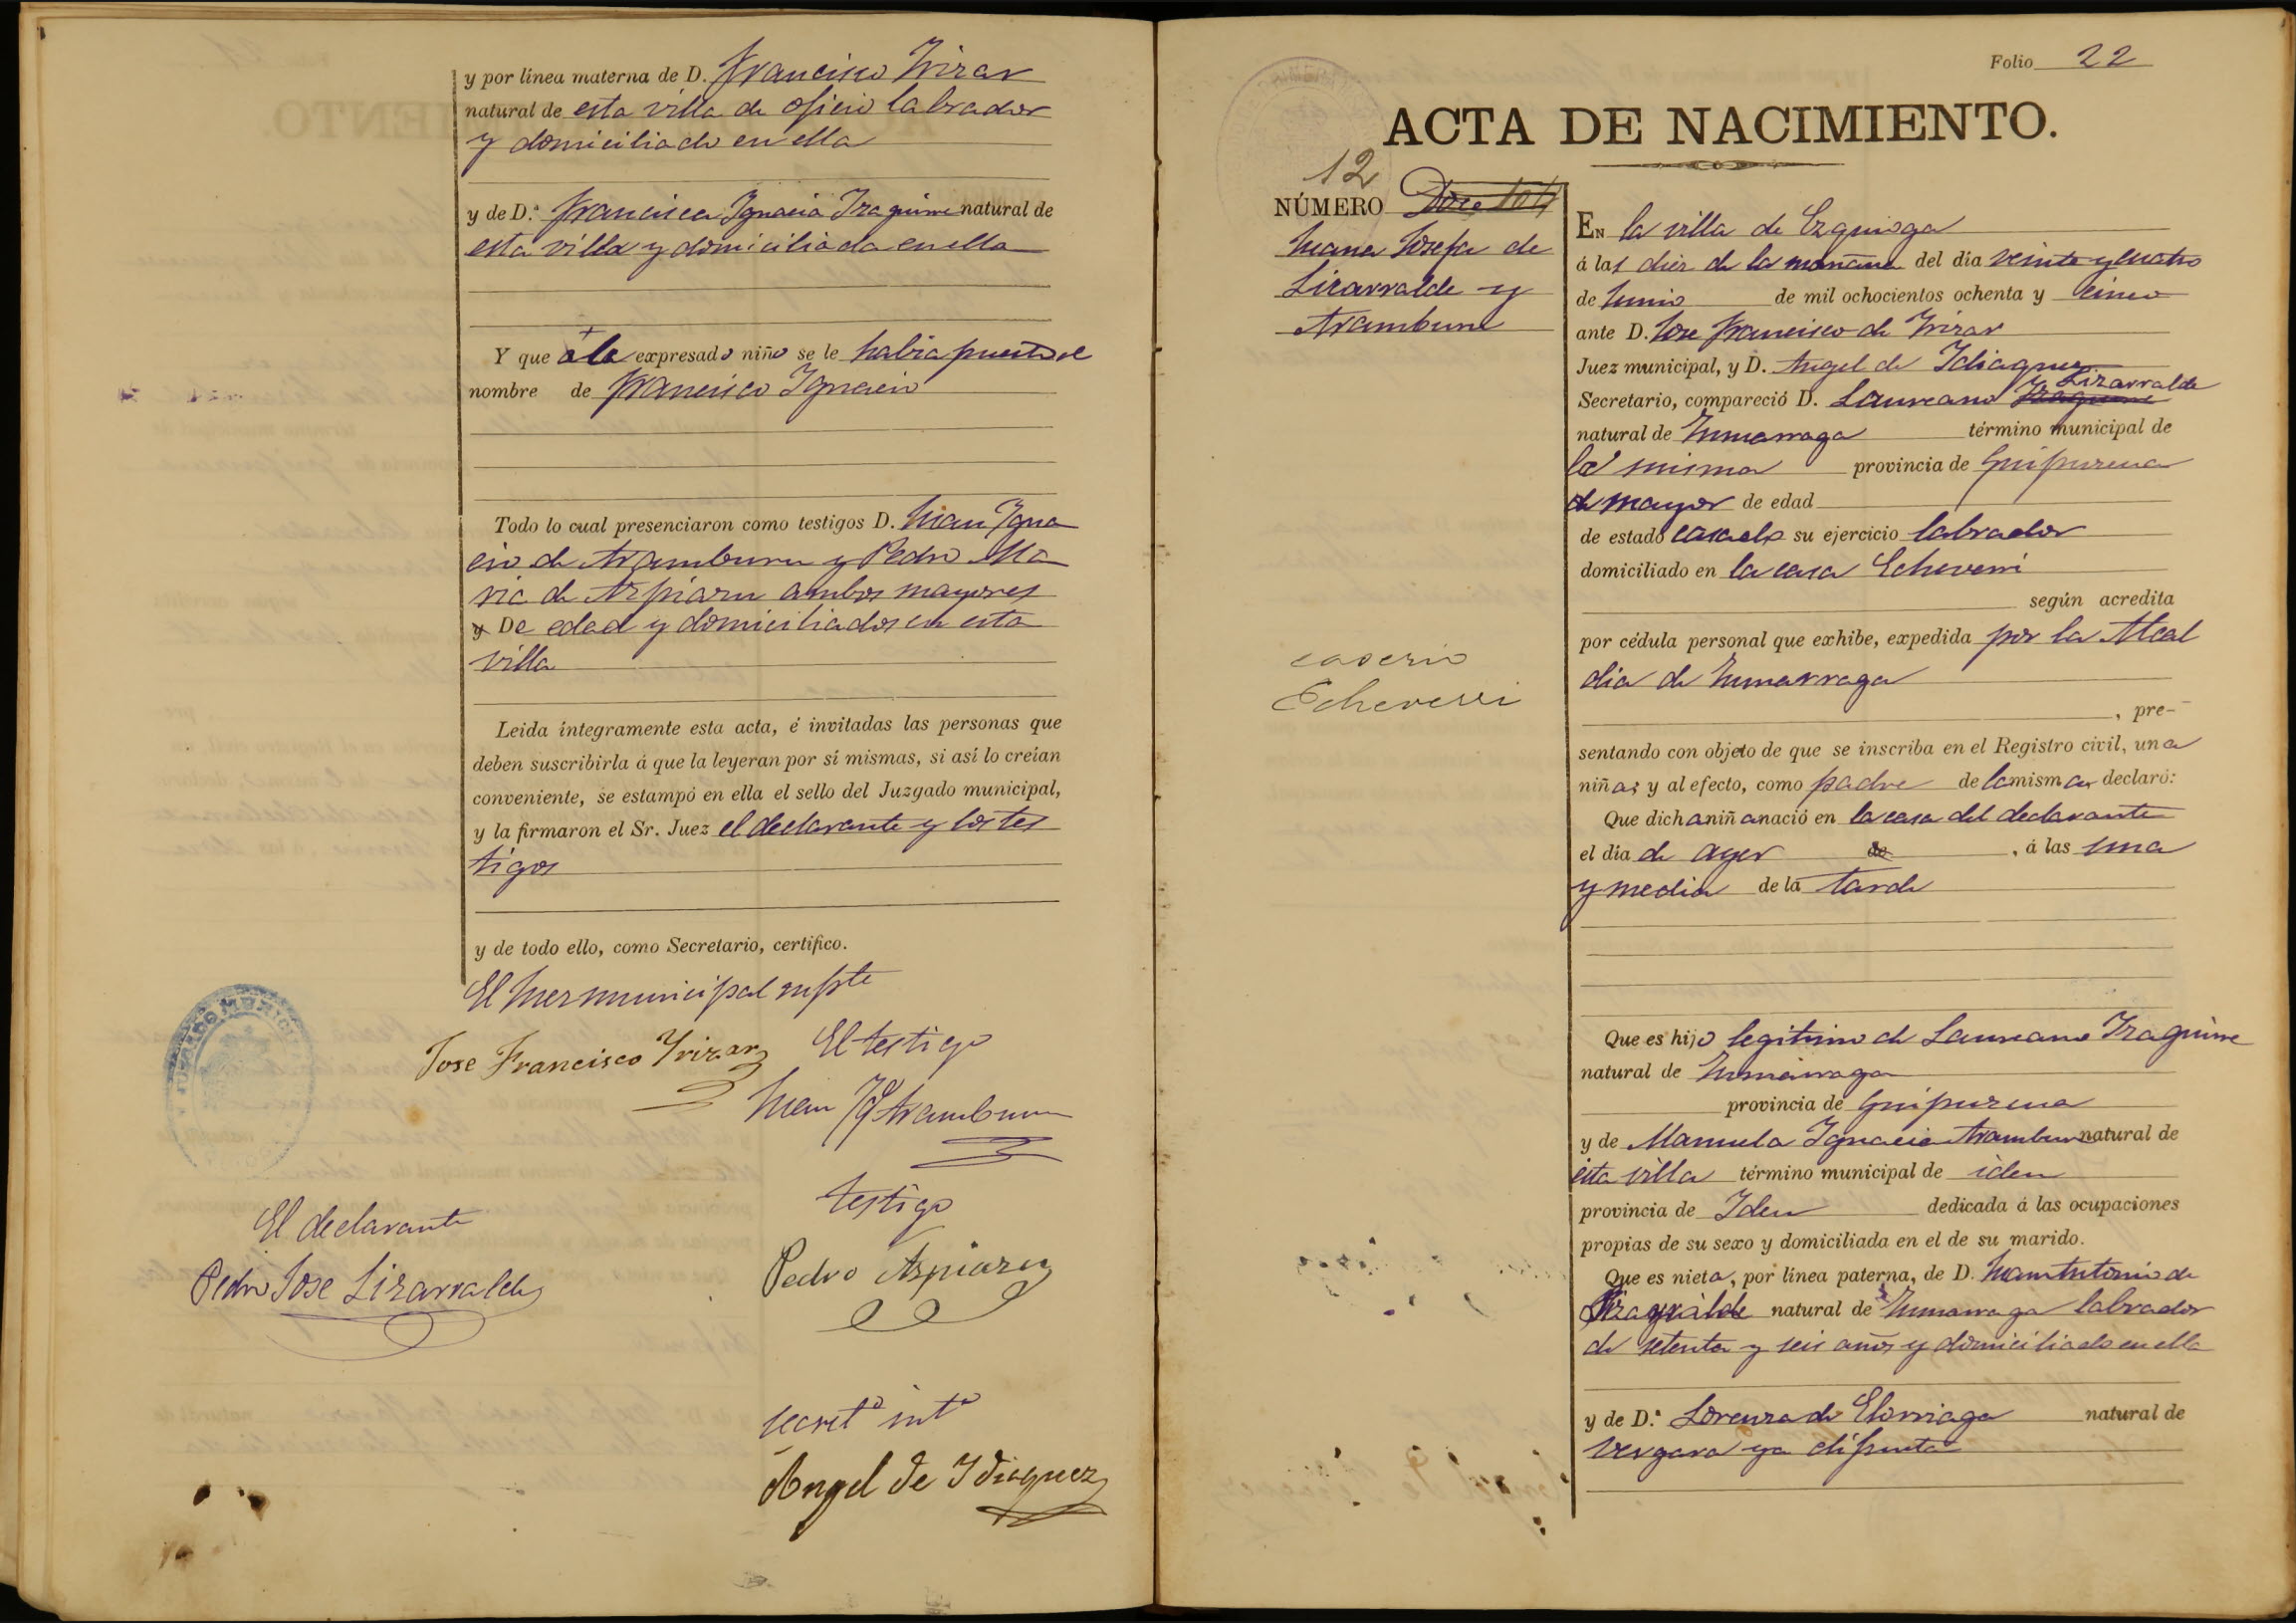 y por línea materna de D. Francisco Yrizar
natural de esta villa de oficio labrador
y domiciliado en ella
y de D.ª Francisca Ygnacia Yzaguirre natural de
esta villa y domiciliada en ella
Y que á la expresado niño se le habia puesto el
nombre de Francisco Ygnacio
Todo lo cual presenciaron como testigos D. Juan Ygna
cio de Aramburu y Pedro Ma
ria de Aspiazu ambos mayores
y De edad y domiciliados en esta
villa
Leida íntegramente esta acta, é invitadas las personas que
deben suscribirla á que la leyeran por sí mismas, si así lo creían
conveniente, se estampó en ella el sello del Juzgado municipal,
y la firmaron el Sr. Juez el declarante y los tes
tigos
y de todo ello, como Secretario, certifico.
El Juez municipal suplte
Jose Francisco Yrizar
El testigo
Juan Yg Aramburu
testigo
El declarante
Pedro Jose Lizarralde
Pedro Aspiazu
secretº intº
Angel de Ydiaquez
Folio 22
ACTA DE NACIMIENTO.
12
NÚMERO Doce
Juana Josefa de
Lizarralde y
Aramburu
caserio
Echeverri
EN la villa de Ezquioga
á las diez de la mañana del día veinte y cuatro
de Junio de mil ochocientos ochenta y cinco
ante D. Jose Francisco de Yrizar
Juez municipal, y D. Angel de Ydiaquez
Secretario, compareció D. Laureano Yzaguirre y Lizarralde
natural de Zumarraga término municipal de
la misma provincia de Guipuzcua
de mayor de edad
de estado casado su ejercicio labrador
domiciliado en la casa Echeverri
según acredita
por cédula personal que exhibe, expedida por la Alcal
dia de Zumarraga
, pre-
sentando con objeto de que se inscriba en el Registro civil, una
niña; y al efecto, como padre de la misma, declaró:
Que dicha niña nació en la casa del declarante
el día de ayer de , á las una
y media de la tarde
Que es hijo legitimo de Laureano Yzaguirre
natural de Zumarraga
provincia de Guipuzcua
y de Manuela Ygnacia Aramburu natural de
esta villa término municipal de iden
provincia de Yden dedicada á las ocupaciones
propias de su sexo y domiciliada en el de su marido.
Que es nieta, por línea paterna, de D. Juan Antonio de
natural de Zumarraga labrador
de setenta y seis años y domiciliado en ella
y de D.ª Lorenza de Elorriaga natural de
Vergara ya difunta